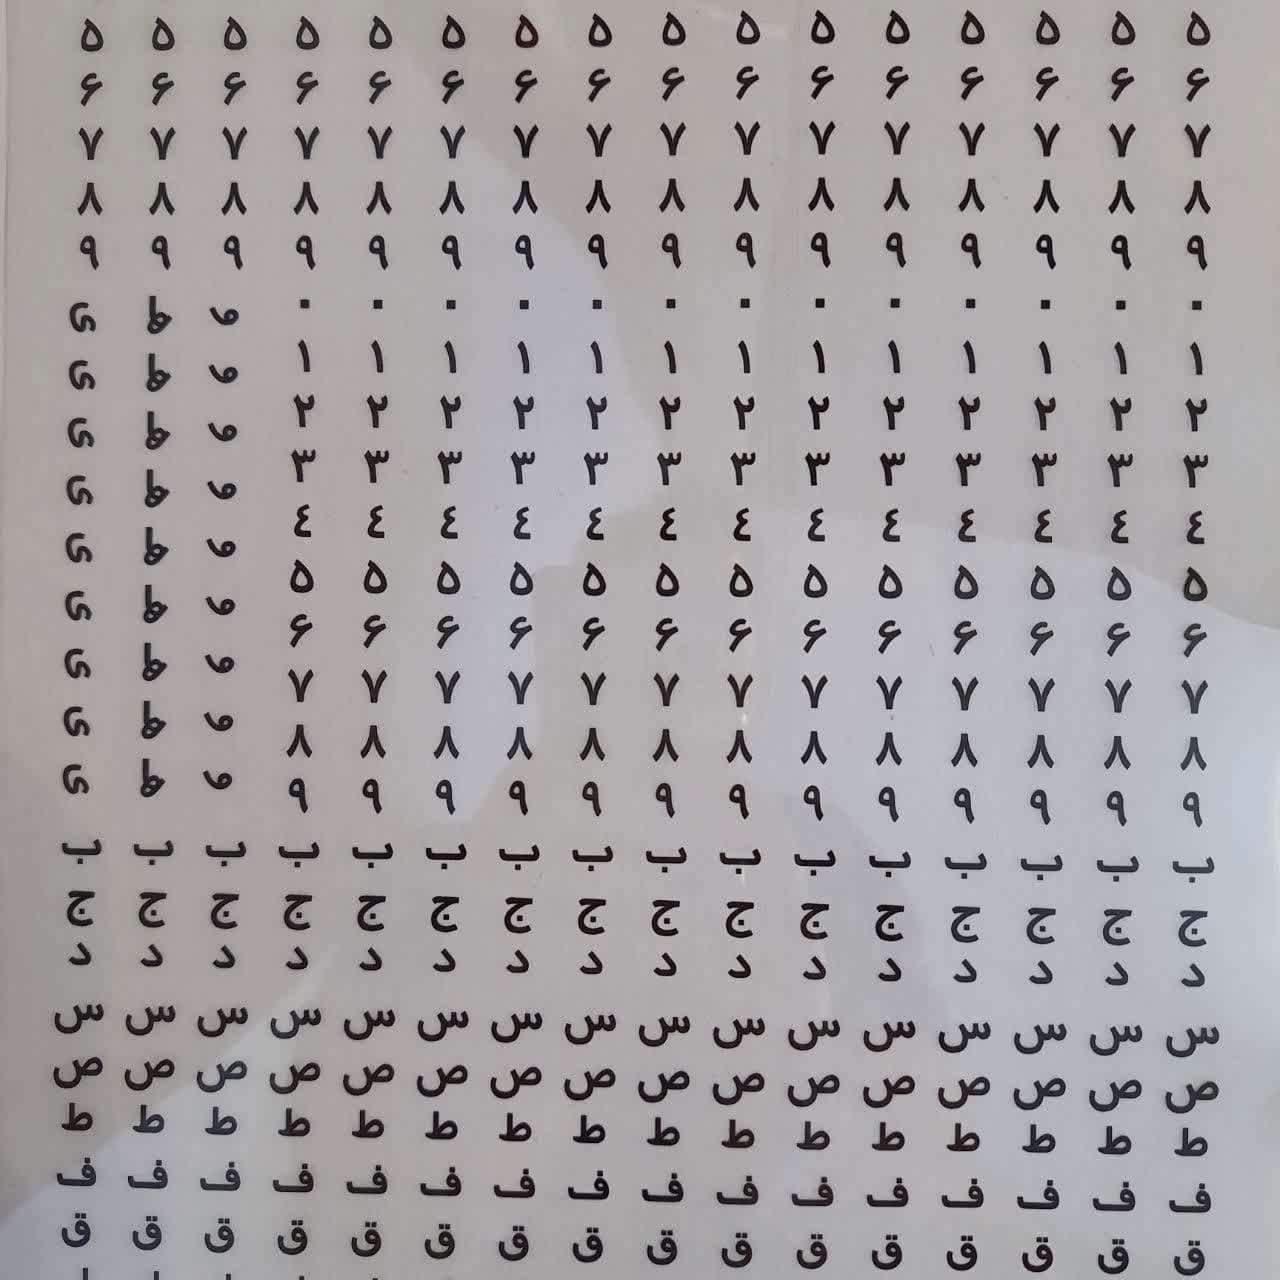 ۵ ۵ ۵ ۵ ۵ ۵ ۵ ۵ ۵ ۵ ۵ ۵ ۵ ۵ ۵ ۵
۶ ۶ ۶ ۶ ۶ ۶ ۶ ۶ ۶ ۶ ۶ ۶ ۶ ۶ ۶ ۶
۷ ۷ ۷ ۷ ۷ ۷ ۷ ۷ ۷ ۷ ۷ ۷ ۷ ۷ ۷ ۷
۸ ۸ ۸ ۸ ۸ ۸ ۸ ۸ ۸ ۸ ۸ ۸ ۸ ۸ ۸ ۸
۹ ۹ ۹ ۹ ۹ ۹ ۹ ۹ ۹ ۹ ۹ ۹ ۹ ۹ ۹ ۹
۰ ۰ ۰ ۰ ۰ ۰ ۰ ۰ ۰ ۰ ۰ ۰ ۰ و هـ ی
۱ ۱ ۱ ۱ ۱ ۱ ۱ ۱ ۱ ۱ ۱ ۱ ۱ و هـ ی
۲ ۲ ۲ ۲ ۲ ۲ ۲ ۲ ۲ ۲ ۲ ۲ ۲ و هـ ی
۳ ۳ ۳ ۳ ۳ ۳ ۳ ۳ ۳ ۳ ۳ ۳ ۳ و هـ ی
٤ ٤ ٤ ٤ ٤ ٤ ٤ ٤ ٤ ٤ ٤ ٤ ٤ و هـ ی
۵ ۵ ۵ ۵ ۵ ۵ ۵ ۵ ۵ ۵ ۵ ۵ ۵ و هـ ی
۶ ۶ ۶ ۶ ۶ ۶ ۶ ۶ ۶ ۶ ۶ ۶ ۶ و هـ ی
۷ ۷ ۷ ۷ ۷ ۷ ۷ ۷ ۷ ۷ ۷ ۷ ۷ و هـ ی
۸ ۸ ۸ ۸ ۸ ۸ ۸ ۸ ۸ ۸ ۸ ۸ ۸ و هـ ی
۹ ۹ ۹ ۹ ۹ ۹ ۹ ۹ ۹ ۹ ۹ ۹ ۹
ب ب ب ب ب ب ب ب ب ب ب ب ب ب ب ب
ج ج ج ج ج ج ج ج ج ج ج ج ج ج ج ج
د د د د د د د د د د د د د د د د
س س س س س س س س س س س س س س س س
ص ص ص ص ص ص ص ص ص ص ص ص ص ص ص ص
ط ط ط ط ط ط ط ط ط ط ط ط ط ط ط ط
ف ف ف ف ف ف ف ف ف ف ف ف ف ف ف ف
ق ق ق ق ق ق ق ق ق ق ق ق ق ق ق ق